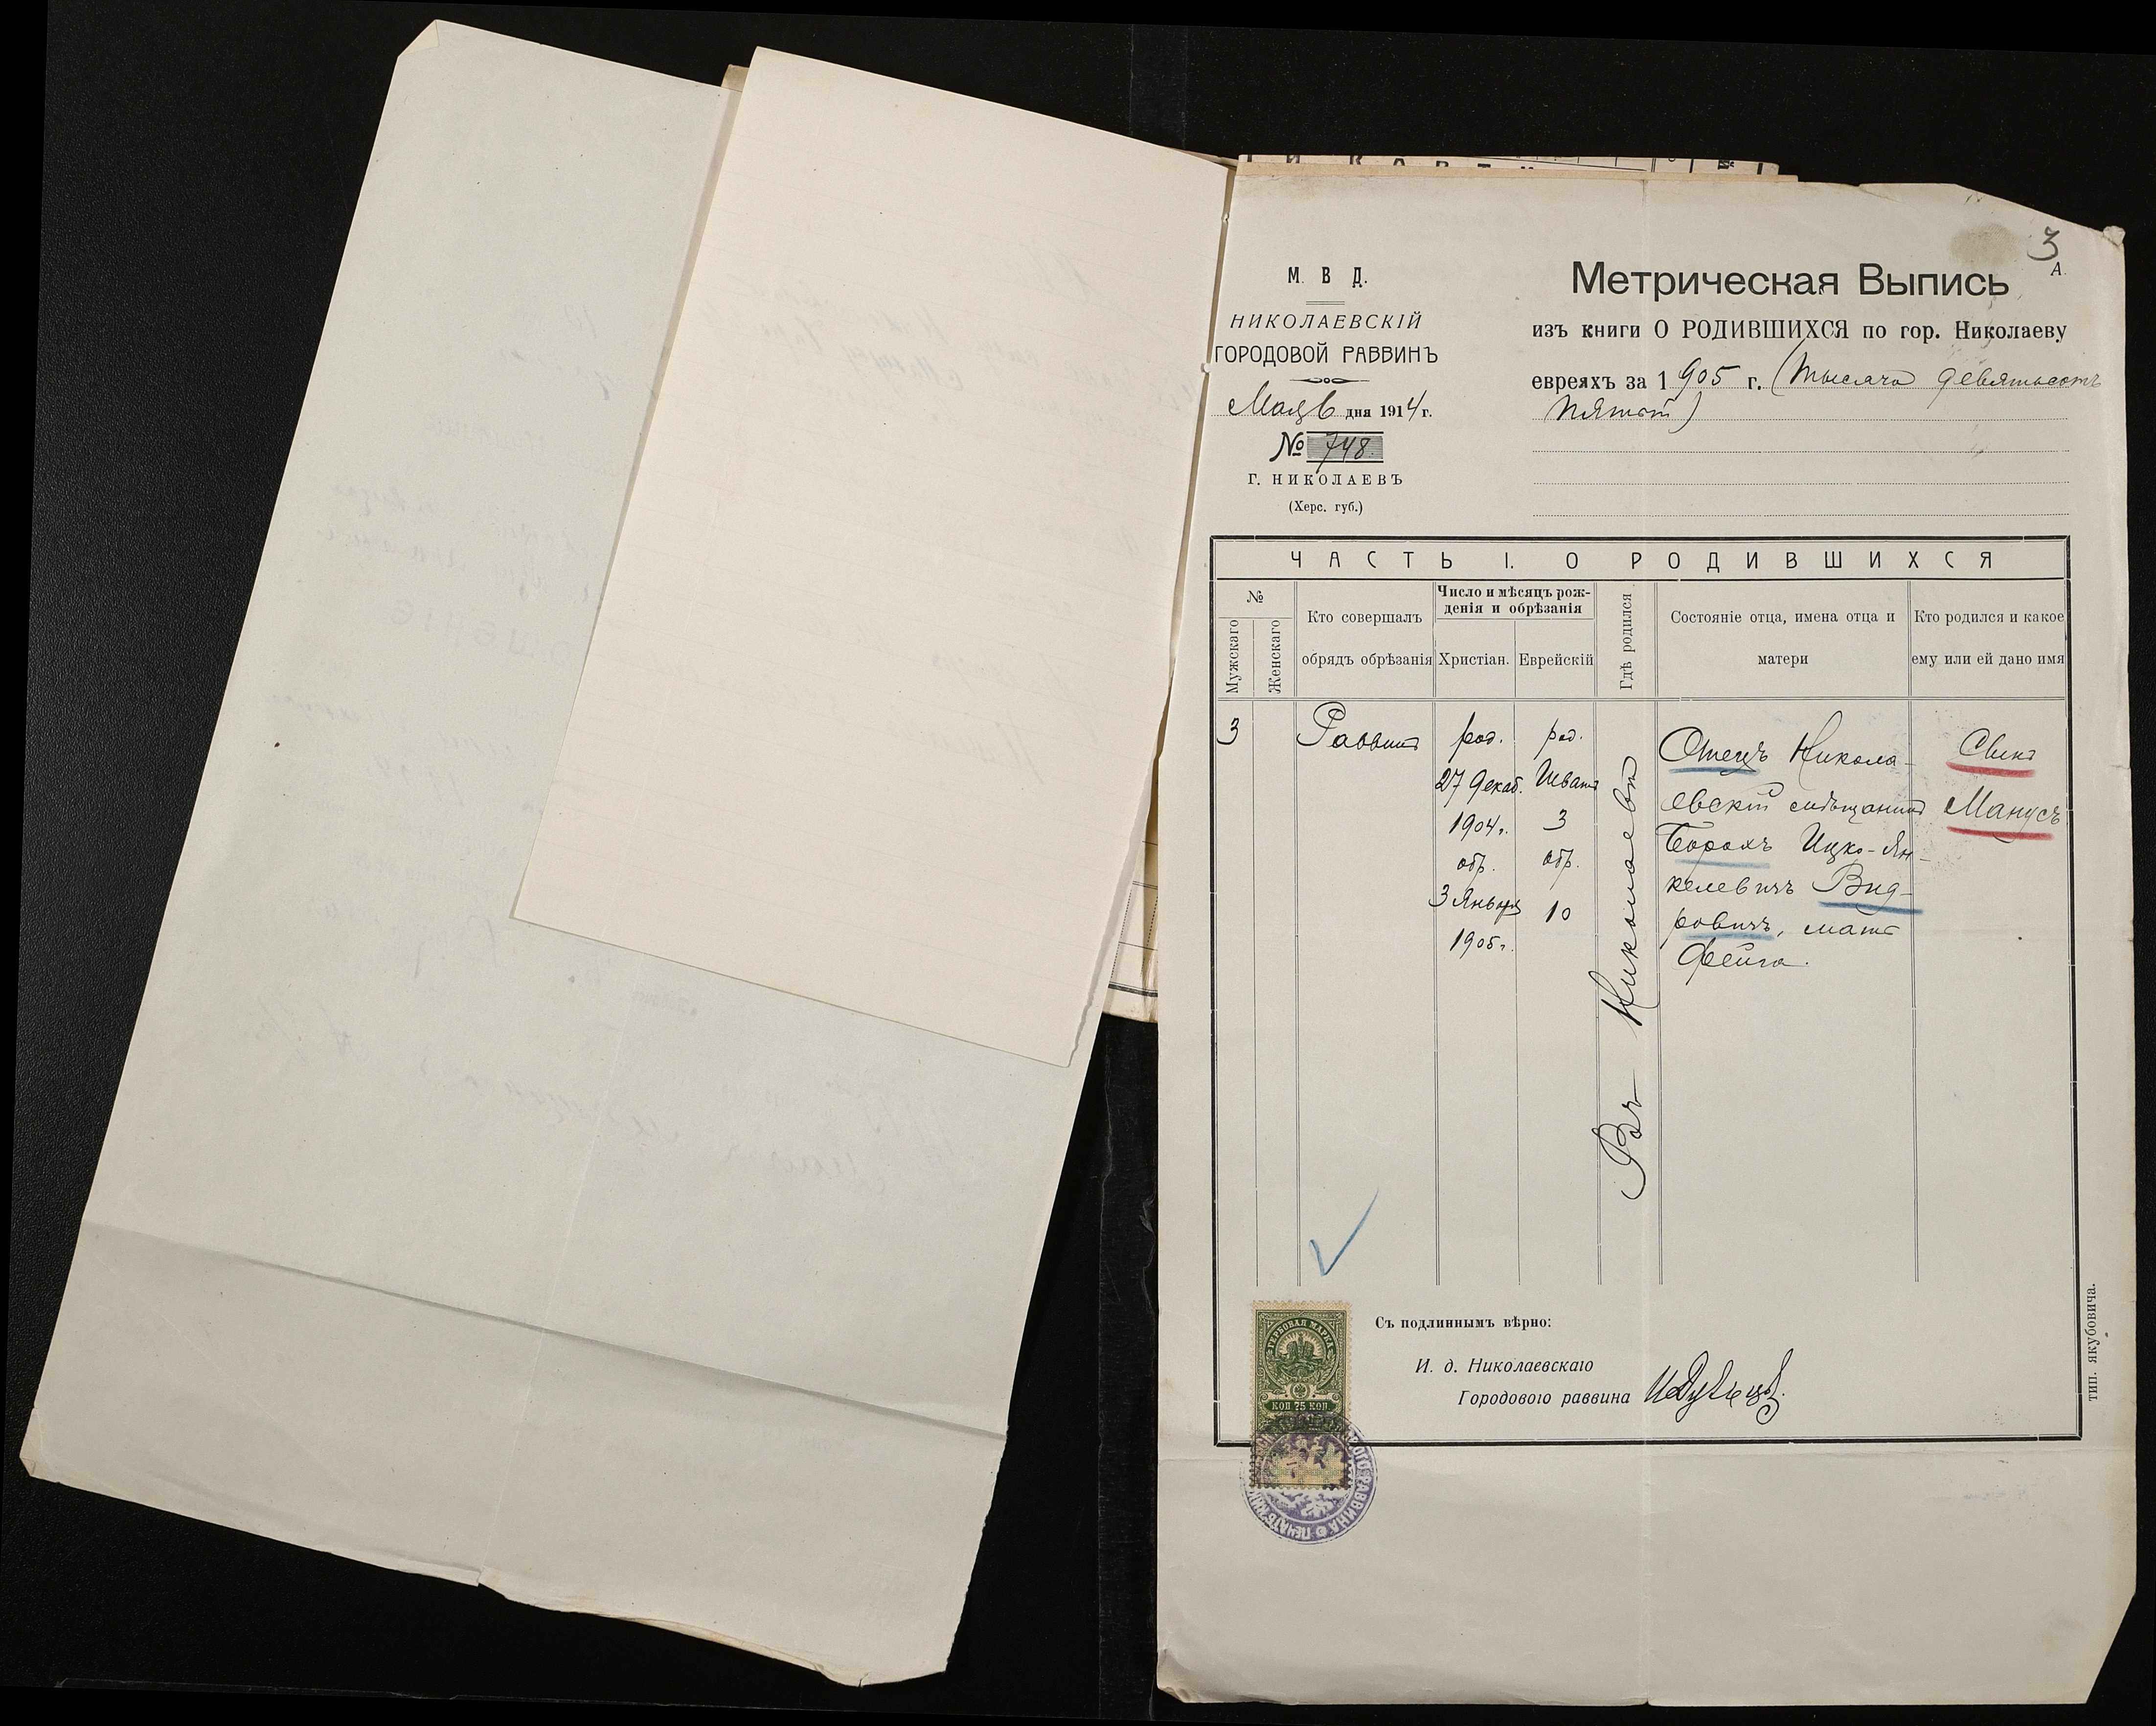 3
А.
М. В Д.
НИКОЛАЕВСКІЙ
ГОРОДОВОЙ РАВВИНЪ
Мая 6 дня 1914 г.
№ 748.
Г. НИКОЛАЕВЪ
(Херс. губ.)
Метрическая Выпись
изъ книги О РОДИВШИХСЯ по гор. Николаеву
евреяхъ за 1905 г. (Тысяча девятьсотъ
пятый)
ЧАСТЬ I. О РОДИВШИХСЯ
№
Мужскаго
Женскаго
Кто совершалъ
обрядъ обрѣзанія
Число и мѣсяцъ рож-
денія и обрѣзанія
Христіан.
Еврейскій
Гдѣ родился
Состояніе отца, имена отца и
матери
Кто родился и какое
ему или ей дано имя
3
Раввинъ
род.
27 Декаб.
1904 г.
обр.
3 Января
1905 г.
род.
Шватъ
3
обр.
10
Въ Николаевѣ
Отецъ Никола-
евскій мѣщанинъ
Борохъ Ицко-Ян-
келевичъ Выд-
ровичъ, мать
Фейга.
Сынъ
Манусъ
Съ подлиннымъ вѣрно:
И. д. Николаевскаго
Городового раввина
ГЕРБОВАЯ МАРКА
КОП 75 КОП
тип. якубовича.